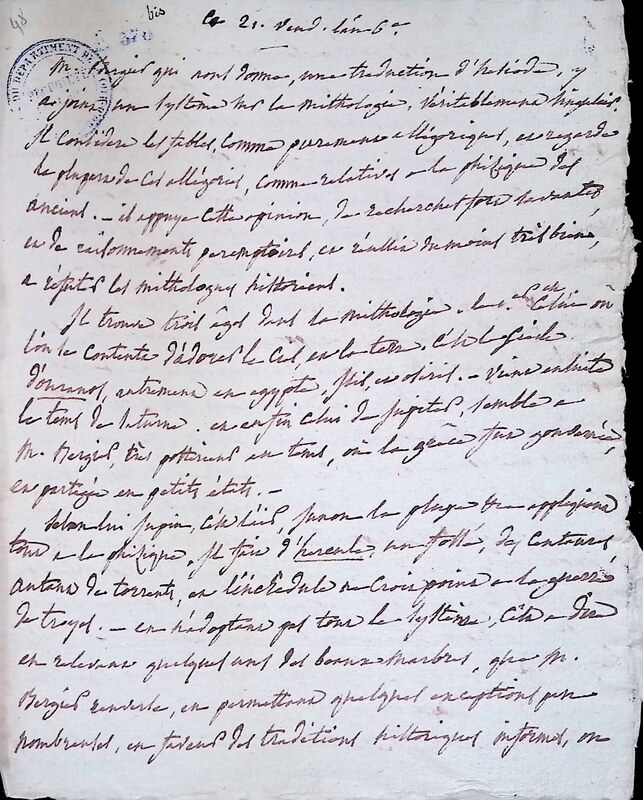 48
bis
376
ce 21. vend. l'an 6e.
DU DÉPARTEMENT DE LA
M. Bergier qui nous donne, une traduction d'hésiode, y
ajoute un système sur la mithologie, véritablement singulier
il considère les fables, comme purement allégoriques, et regarde
la plupart de ces allégories, comme relatives a la phisique des
anciens. - il appuye cette opinion, de recherches fort savantes,
et de raisonnements peremptoires, et réussit du moins très bien,
a réfuter les mithologues historiens.
Il trouve trois âges dans la mithologie. le 1er est celui où
l'on se contenta d'adorer le ciel, et la terre. c'est le siècle
d'ouranos, autrement en egypte, isis, et osiris. - vient ensuite
le tems de saturne. et enfin celui de jupiter, semble a
M. Bergier, très postérieur en tems, où la grèce fut gouvernée,
et partagée en petits états. -
selon lui jupin, c'est l'air, junon la pluye &c appliquant
tout a la phisique. Il fait d'hercule, un fossé, des centaures
autant de torrents, et l'incrédule ne croit point a la guerre
de troyes. - en n'adoptant pas tout le système, c'est a dire
en relevant quelques uns des beaux marbres, que M.
Bergier renverse, et permettant quelques exceptions peu
nombreuses, en faveur des traditions historiques informes, on